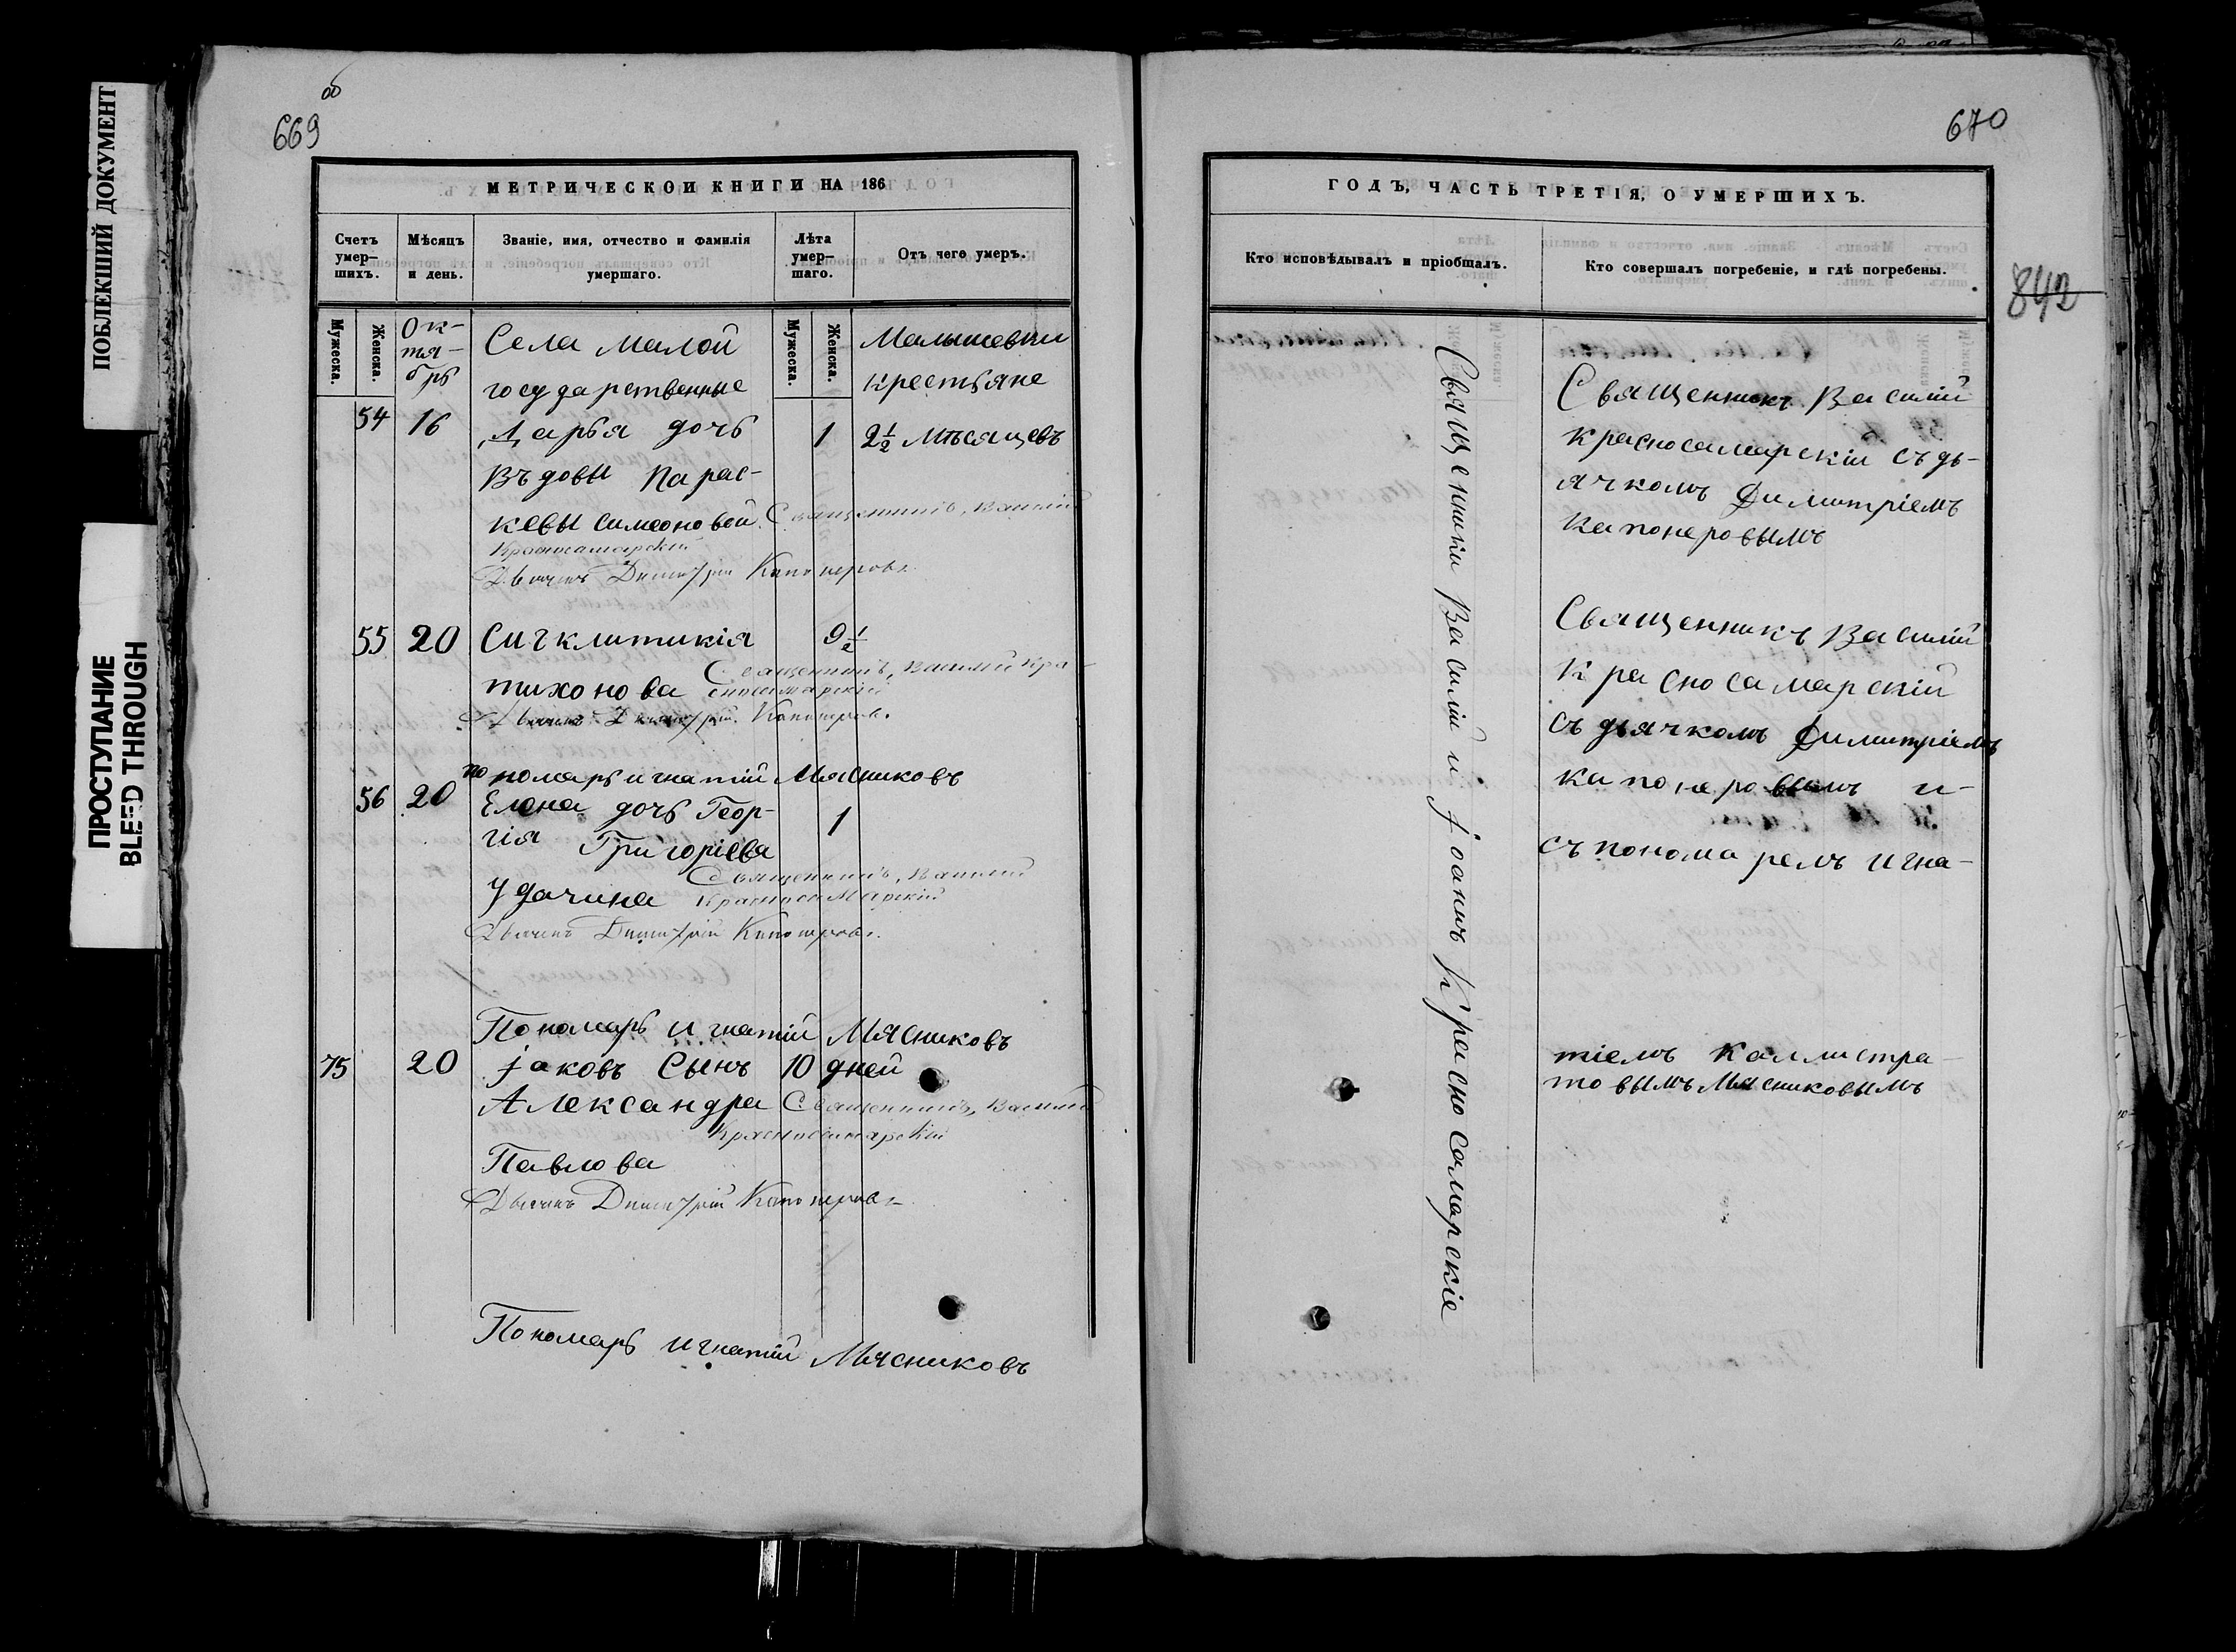 ПОБЛЕКШИЙ ДОКУМЕНТ
ПРОСТУПАНИЕ
BLEED THROUGH
об
669
МЕТРИЧЕСКОЙ КНИГИ НА 186
Счетъ умер-шихъ.
Мѣсяцъ и день.
Званіе, имя, отчество и фамилія умершаго.
Лѣта умер-шаго.
Отъ чего умеръ.
Мужеска.
Женска.
Мужеска.
Женска.
Ок-
тя-
брь
Села малой Малышевки
государственные крестьяне
54 16 Дарья дочь 1 2 1/2 мѣсяцевъ
въдовы Парас-
кевы симеоновой. Священникъ, Василій
Красносамарскій
Дьячекъ Димитрій Капонеровъ.
55 20 Сигклитикія 9 1/2
тихонова Священникъ, Василій Кра-
сносамарскій
Дьячекъ Димитрій Капонеров.
пономарь игнатій Мясниковъ
56 20 Елена дочь Геор- 1
гія Григоріева
Удачина Священникъ, Василій
Красносамарскій
Дьячекъ Димитрій Капонеровъ.
Пономарь игнатій Мясниковъ
75 20 Jаковъ Сынъ 10 дней
Александра Священникъ, Василій
Красносамарскій
Павлова
Дьячекъ Димитрій Капонеровъ
Пономарь игнатій Мясниковъ
670
842
ГОДЪ, ЧАСТЬ ТРЕТІЯ, О УМЕРШИХЪ.
Кто исповѣдывалъ и пріобщалъ.
Кто совершалъ погребеніе, и гдѣ погребены.
Священники Василій и Jоаннъ Красносамарскіе
Священникъ Василій
красносамарскій съ дь-
ячкомъ Димитріемъ
капонеровымъ
Священникъ Василій
красносамарскій
съ дьячкомъ Димитріемъ
капонеровымъ и-
съ пономаремъ игна-
тіемъ Каллистра-
товымъ Мясниковымъ